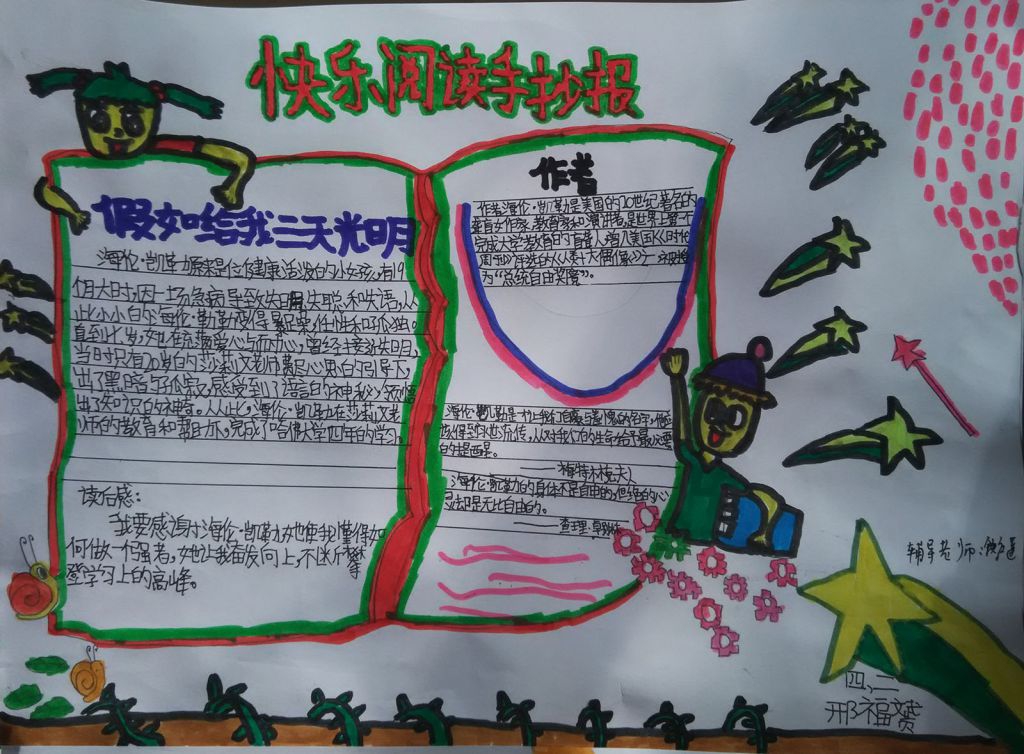 快乐阅读手抄报
假如给我三天光明
海伦·凯勒原来是位健康活泼的小女孩,有19
个月大时,因一场急病导致失明、失聪和失语,从
此小小的海伦·勒勒变得暴躁、任性和孤独。
直到七岁,她在充满爱心与耐心,曾经接近失明,
当时只有20岁的莎莉文老师尽心思的引导下,
出了黑暗与孤寂,感受到了语言的神秘,领悟
出了知识的神奇。从此,海伦·凯勒在莎莉文老
师的教育和帮助下,完成了哈佛大学四年的学习。
读后感:
我要感谢海伦·凯勒,她使我懂得如
何做一个强者,她让我奋发向上,不断攀
登学习上的高峰。
作者
作者海伦·凯勒是美国的20世纪著名的
盲聋女作家、教育家和演讲者,是世界上第一个
完成大学教育的盲聋人,曾入美国《时代
周刊》评选的《人类十大偶像》,
为“总统自由奖章”。
海伦·凯勒是
——梅特林克夫人
海伦·凯勒的身体不是自由的,但她的心
灵却是无比自由的。
——查理·
辅导老师:
四、二
邢福赟